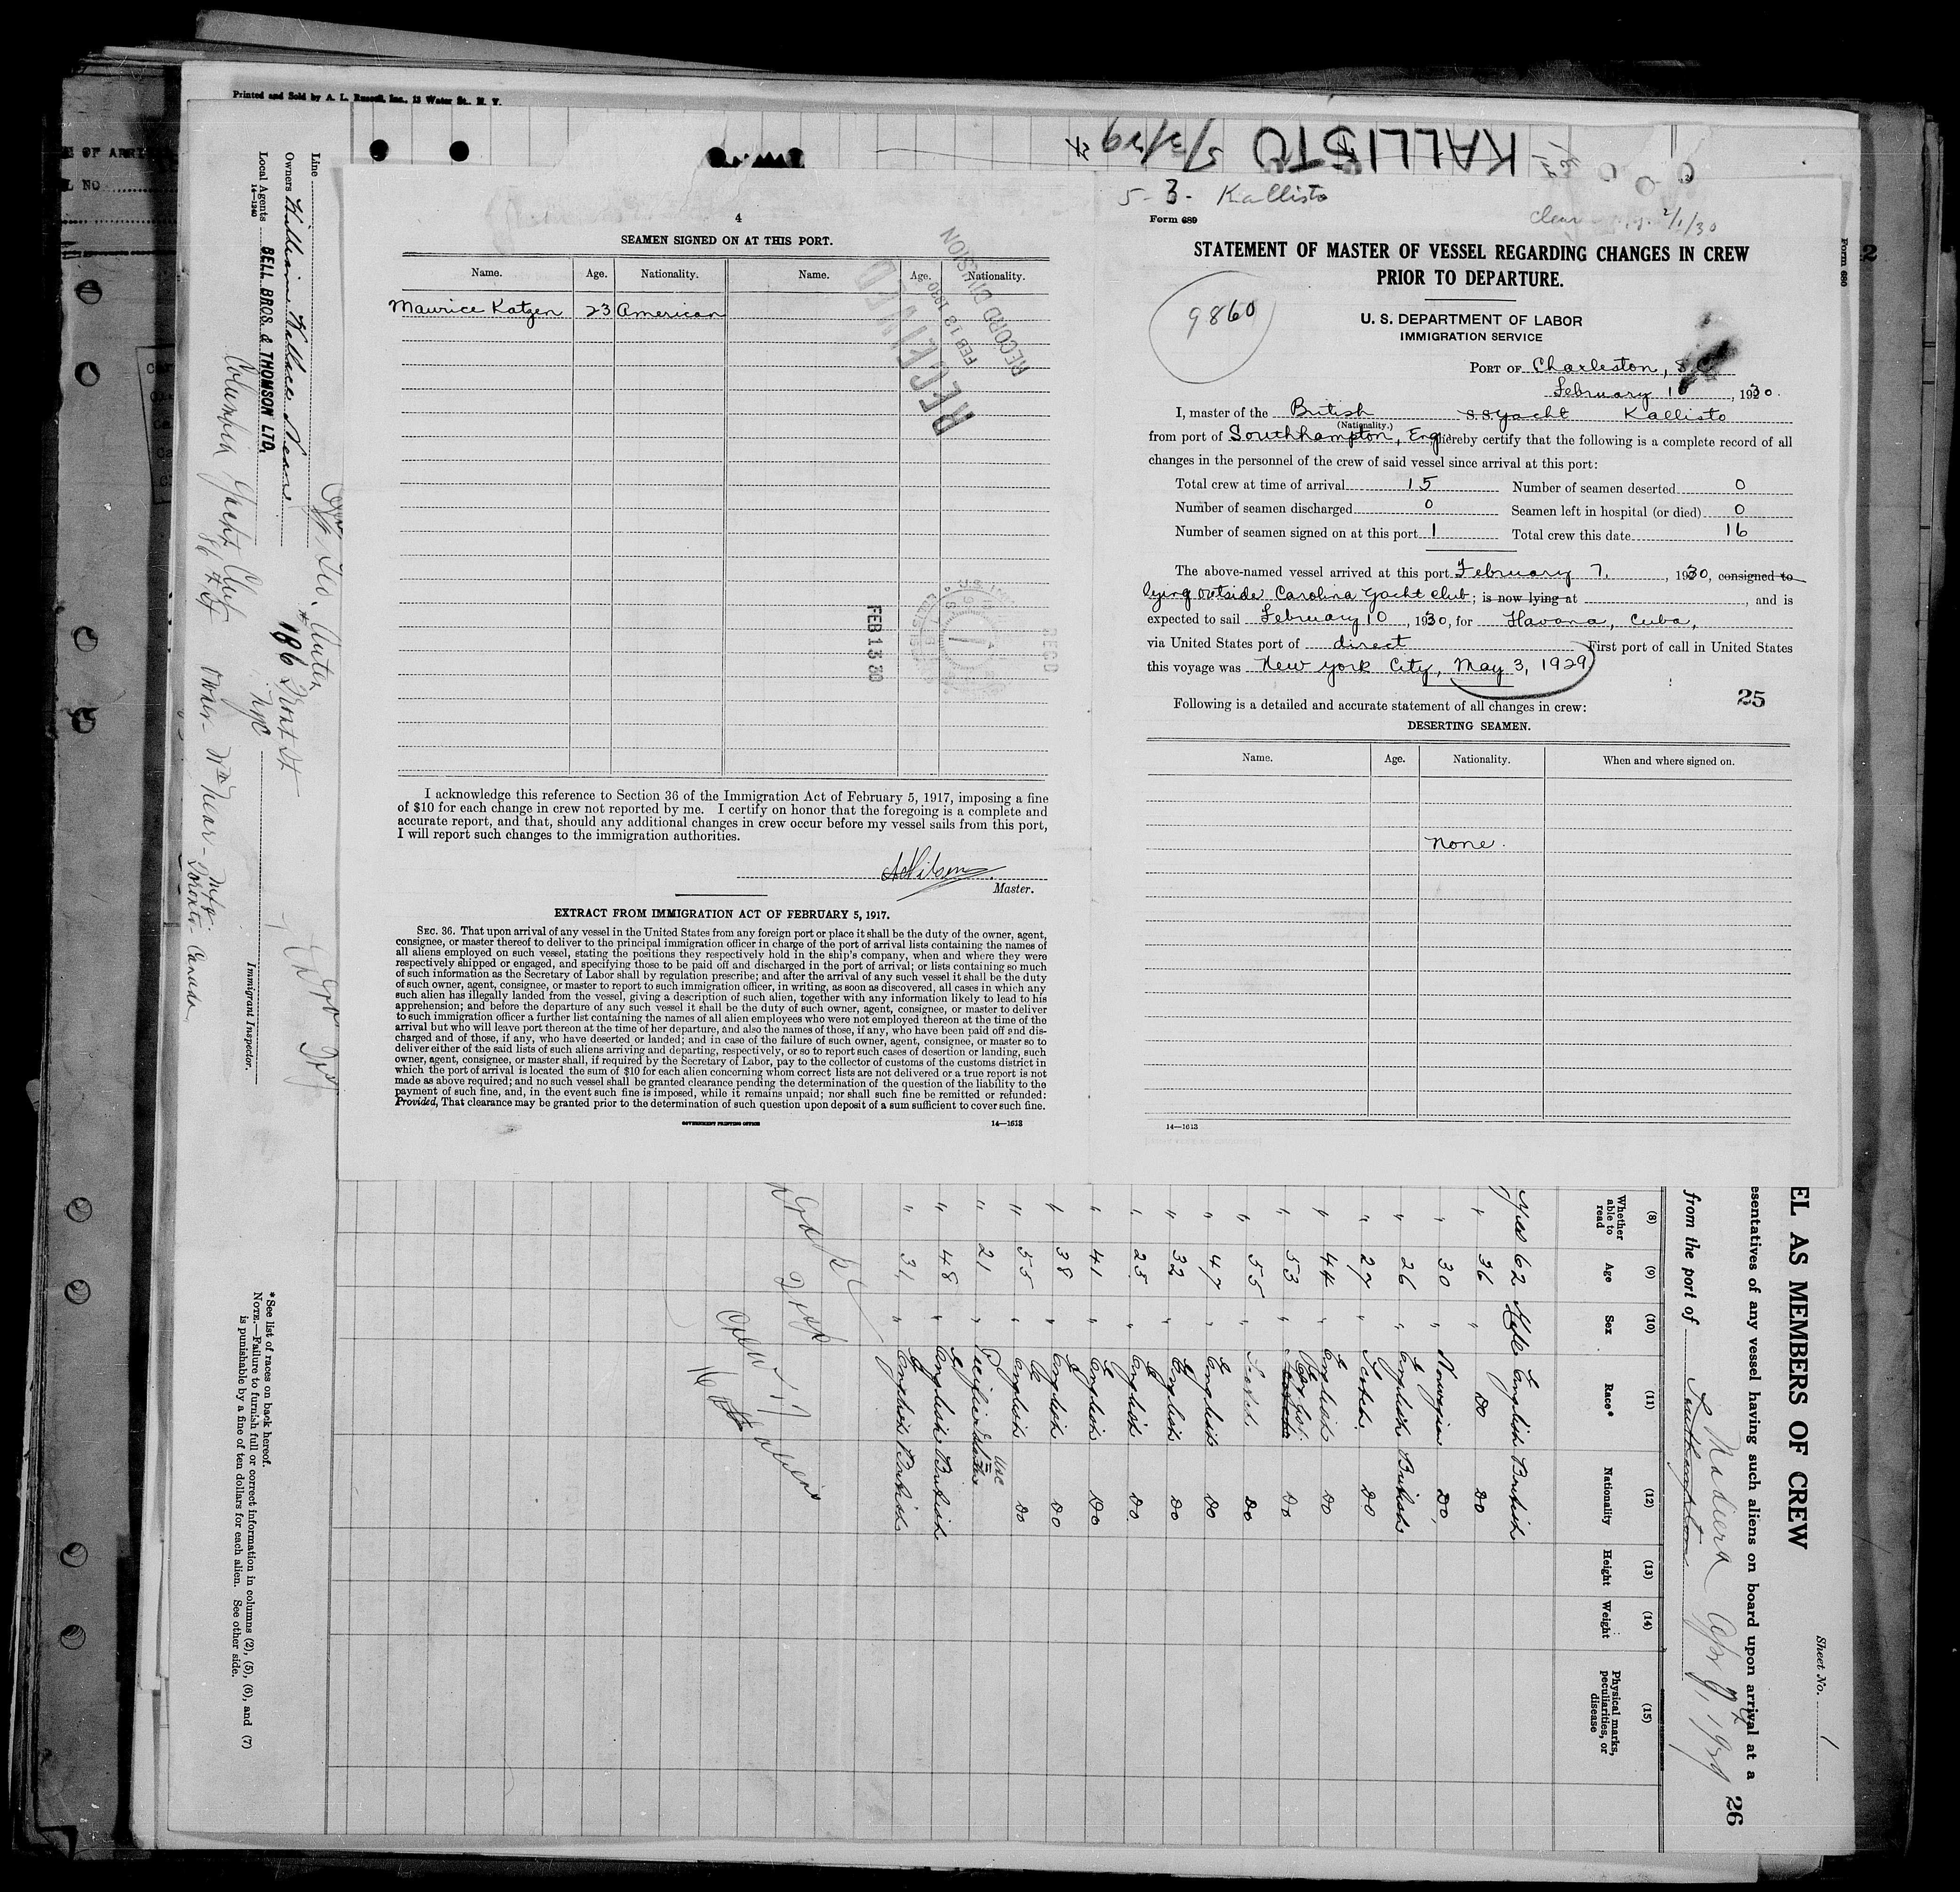 Printed and Sold by A. L. Russell, Inc., 13 Water St., N. Y.
KALLISTO 5/3/29
4
SEAMEN SIGNED ON AT THIS PORT.
Name. Age. Nationality. Name. Age. Nationality.
Maurice Katzen 23 American
RECEIVED
FEB 13 1930
RECORD DIVISION
FEB 13 30
REC'D
I acknowledge this reference to Section 36 of the Immigration Act of February 5, 1917, imposing a fine
of $10 for each change in crew not reported by me. I certify on honor that the foregoing is a complete and
accurate report, and that, should any additional changes in crew occur before my vessel sails from this port,
I will report such changes to the immigration authorities.
Master.
EXTRACT FROM IMMIGRATION ACT OF FEBRUARY 5, 1917.
SEC. 36. That upon arrival of any vessel in the United States from any foreign port or place it shall be the duty of the owner, agent,
consignee, or master thereof to deliver to the principal immigration officer in charge of the port of arrival lists containing the names of
all aliens employed on such vessel, stating the positions they respectively hold in the ship's company, when and where they were
respectively shipped or engaged, and specifying those to be paid off and discharged in the port of arrival; or lists containing so much
of such information as the Secretary of Labor shall by regulation prescribe; and after the arrival of any such vessel it shall be the duty
of such owner, agent, consignee, or master to report to such immigration officer, in writing, as soon as discovered, all cases in which any
such alien has illegally landed from the vessel, giving a description of such alien, together with any information likely to lead to his
apprehension; and before the departure of any such vessel it shall be the duty of such owner, agent, consignee, or master to deliver
to such immigration officer a further list containing the names of all alien employees who were not employed thereon at the time of the
arrival but who will leave port thereon at the time of her departure, and also the names of those, if any, who have been paid off and dis-
charged and of those, if any, who have deserted or landed; and in case of the failure of such owner, agent, consignee, or master so to
deliver either of the said lists of such aliens arriving and departing, respectively, or so to report such cases of desertion or landing, such
owner, agent, consignee, or master shall, if required by the Secretary of Labor, pay to the collector of customs of the customs district in
which the port of arrival is located the sum of $10 for each alien concerning whom correct lists are not delivered or a true report is not
made as above required; and no such vessel shall be granted clearance pending the determination of the question of the liability to the
payment of such fine, and, in the event such fine is imposed, while it remains unpaid; nor shall such fine be remitted or refunded:
Provided, That clearance may be granted prior to the determination of such question upon deposit of a sum sufficient to cover such fine.
GOVERNMENT PRINTING OFFICE 14—1613
5-3- Kallisto
clear 2/1/30
Form 689
STATEMENT OF MASTER OF VESSEL REGARDING CHANGES IN CREW
PRIOR TO DEPARTURE.
9860
U. S. DEPARTMENT OF LABOR
IMMIGRATION SERVICE
PORT OF Charleston, S C
February 10, 1930.
I, master of the British S.S. yacht Kallisto
(Nationality.)
from port of Southhampton, Eng hereby certify that the following is a complete record of all
changes in the personnel of the crew of said vessel since arrival at this port:
Total crew at time of arrival 15 Number of seamen deserted 0
Number of seamen discharged 0 Seamen left in hospital (or died) 0
Number of seamen signed on at this port 1 Total crew this date 16
The above-named vessel arrived at this port February 7, 1930, consigned to
lying outside Carolina Yacht club; is now lying at , and is
expected to sail February 10, 1930, for Havana, Cuba,
via United States port of direct First port of call in United States
this voyage was New York City, May 3, 1929
25
Following is a detailed and accurate statement of all changes in crew:
DESERTING SEAMEN.
Name. Age. Nationality. When and where signed on.
None.
14—1613
Form 680
Sheet No. 1
EL AS MEMBERS OF CREW
esentatives of any vessel having such aliens on board upon arrival at a
from the port of Southampton Madiera Apr 9, 1929
26
(8) (9) (10) (11) (12) (13) (14) (15)
Whether able to read Age Sex Race* Nationality Height Weight Physical marks, peculiarities, or disease
Yes 62 Male English British
" 36 " Do Do
" 30 " Norwegian Do
" 26 " English British
" 27 " Scotch Do
" 44 " English Do
" 53 " English Do
" 55 " Scotch Do
" 47 " English Do
" 32 " English Do
" 25 " English Do
" 41 " English Do
" 38 " English Do
" 55 " English Do
" 21 "
" 48 " English British
" 31 " English British
Crew 17
16 aliens
Line
Owners William Wallace Near
Local Agents BELL BROS. & THOMSON LTD.
14—1240
Columbia Yacht Club
86 St
Owner Wm Near - Mfg
Toronto Canada
186 Front St
NYC
Immigrant Inspector.
* See list of races on back hereof.
NOTE.—Failure to furnish full or correct information in columns (2), (5), (6), and (7)
is punishable by a fine of ten dollars for each alien. See other side.